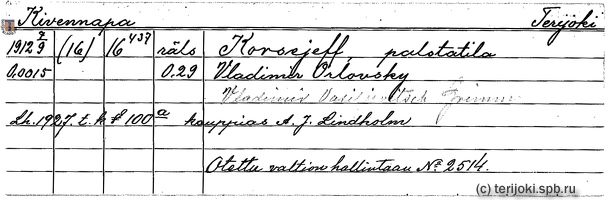 Kivennapa Terijoki
1912 7/9 (16) 16 437 räls Korsejeff, palstatila
0.0015 0.29 Vladimir Orlovsky
Vladimir Vasiliewitsch Grimm
Lh. 1927. t. k § 100 a kauppias A. J. Lindholm
Otettu valtion hallintaan No 2514.
(c) terijoki.spb.ru